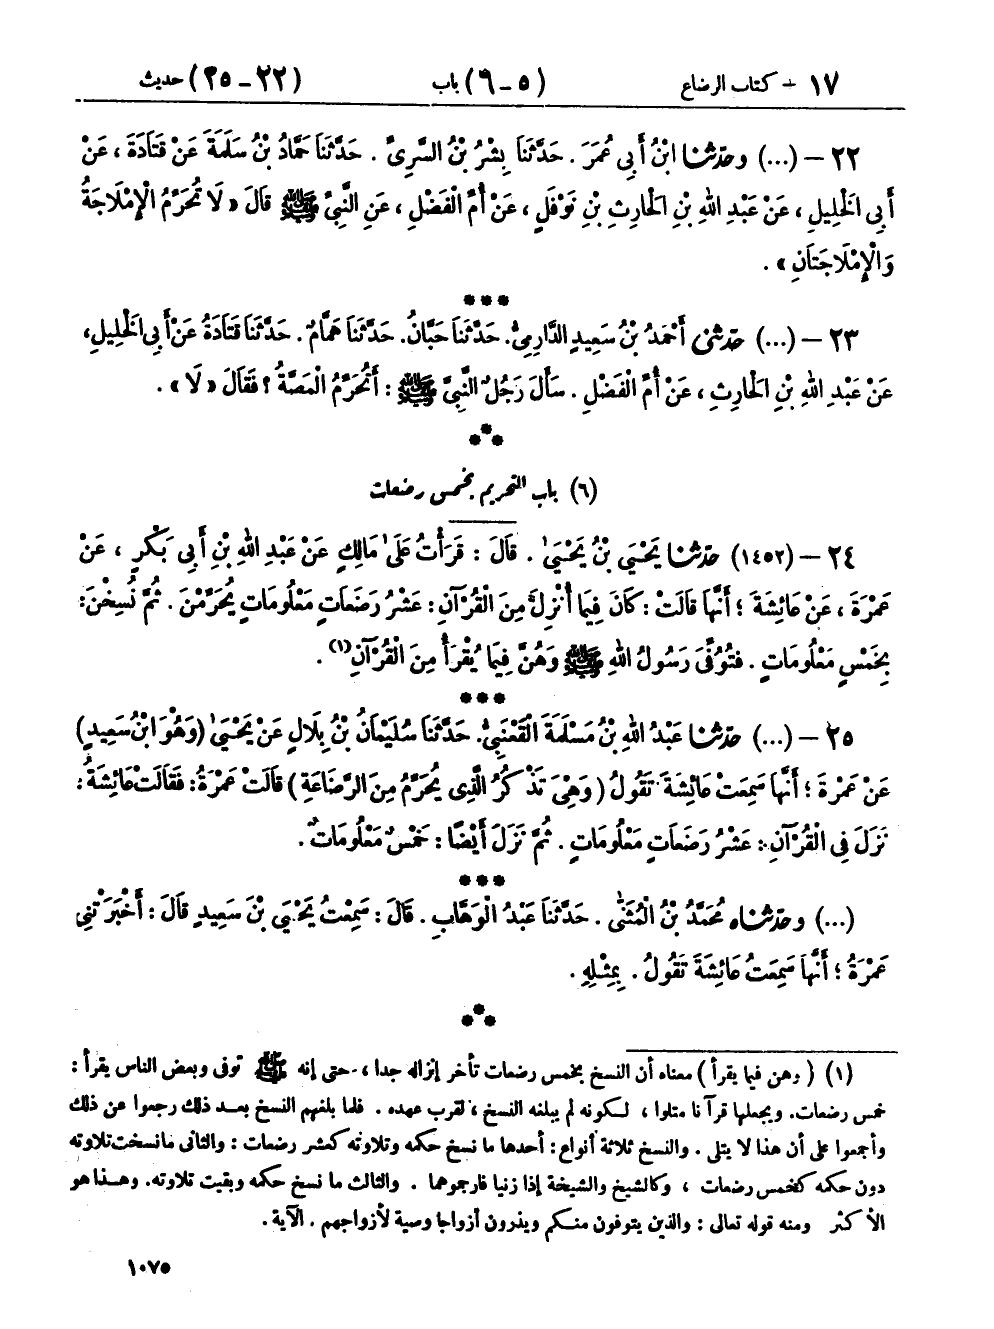 ١٧ - كتاب الرضاع (٥ - ٦) باب (٢٢ - ٢٥) حديث
٢٢ - (...) وحَدَّثَنَا ابْنُ أَبِي عُمَرَ. حَدَّثَنَا بِشْرُ بْنُ السَّرِيِّ. حَدَّثَنَا حَمَّادُ بْنُ سَلَمَةَ عَنْ قَتَادَةَ، عَنْ
أَبِي الْخَلِيلِ، عَنْ عَبْدِ اللهِ بْنِ الْحَارِثِ بْنِ نَوْفَلٍ، عَنْ أُمِّ الْفَضْلِ، عَنِ النَّبِيِّ ﷺ قَالَ «لَا تُحَرِّمُ الْإِمْلَاجَةُ
وَالْإِمْلَاجَتَانِ».
***
٢٣ - (...) حَدَّثَنِي أَحْمَدُ بْنُ سَعِيدٍ الدَّارِمِيُّ. حَدَّثَنَا حَبَّانُ. حَدَّثَنَا هَمَّامٌ. حَدَّثَنَا قَتَادَةُ عَنْ أَبِي الْخَلِيلِ،
عَنْ عَبْدِ اللهِ بْنِ الْحَارِثِ، عَنْ أُمِّ الْفَضْلِ. سَأَلَ رَجُلٌ النَّبِيَّ ﷺ: أَتُحَرِّمُ الْمَصَّةُ؟ فَقَالَ «لَا».
***
(٦) باب التحريم بخمس رضعات
٢٤ - (١٤٥٢) حَدَّثَنَا يَحْيَى بْنُ يَحْيَىٰ. قَالَ: قَرَأْتُ عَلَىٰ مَالِكٍ عَنْ عَبْدِ اللهِ بْنِ أَبِي بَكْرٍ، عَنْ
عَمْرَةَ، عَنْ عَائِشَةَ؛ أَنَّهَا قَالَتْ: كَانَ فِيمَا أُنْزِلَ مِنَ الْقُرْآنِ: عَشْرُ رَضَعَاتٍ مَعْلُومَاتٍ يُحَرِّمْنَ. ثُمَّ نُسِخْنَ:
بِخَمْسٍ مَعْلُومَاتٍ. فَتُوُفِّيَ رَسُولُ اللهِ ﷺ وَهُنَّ فِيمَا يُقْرَأُ مِنَ الْقُرْآنِ(١).
***
٢٥ - (...) حَدَّثَنَا عَبْدُ اللهِ بْنُ مَسْلَمَةَ الْقَعْنَبِيُّ. حَدَّثَنَا سُلَيْمَانُ بْنُ بِلَالٍ عَنْ يَحْيَىٰ (وَهُوَ ابْنُ سَعِيدٍ)
عَنْ عَمْرَةَ؛ أَنَّهَا سَمِعَتْ عَائِشَةَ تَقُولُ (وَهِيَ تَذْكُرُ الَّذِي يُحَرِّمُ مِنَ الرَّضَاعَةِ) قَالَتْ عَمْرَةُ: فَقَالَتْ عَائِشَةُ:
نَزَلَ فِي الْقُرْآنِ: عَشْرُ رَضَعَاتٍ مَعْلُومَاتٍ. ثُمَّ نَزَلَ أَيْضًا: خَمْسٌ مَعْلُومَاتٌ.
***
(...) وحَدَّثَنَاه مُحَمَّدُ بْنُ الْمُثَنَّى. حَدَّثَنَا عَبْدُ الْوَهَّابِ. قَالَ: سَمِعْتُ يَحْيَى بْنَ سَعِيدٍ قَالَ: أَخْبَرَتْنِي
عَمْرَةُ؛ أَنَّهَا سَمِعَتْ عَائِشَةَ تَقُولُ. بِمِثْلِهِ.
***
(١) (وهن فيما يقرأ) معناه أن النسخ بخمس رضعات تأخر إنزاله جدا، حتى إنه ﷺ توفى وبعض الناس يقرأ:
خمس رضعات. ويجعلها قرآنا متلوا، لكونه لم يبلغه النسخ، لقرب عهده. فلما بلغهم النسخ بعد ذلك رجعوا عن ذلك
وأجمعوا على أن هذا لا يتلى. والنسخ ثلاثة أنواع: أحدها ما نسخ حكمه وتلاوته كعشر رضعات: والثانى ما نسخت تلاوته
دون حكمه كخمس رضعات، وكالشيخ والشيخة إذا زنيا فارجموهما. والثالث ما نسخ حكمه وبقيت تلاوته. وهذا هو
الأكثر ومنه قوله تعالى: والذين يتوفون منكم ويذرون أزواجا وصية لأزواجهم. الآية.
١٠٧٥